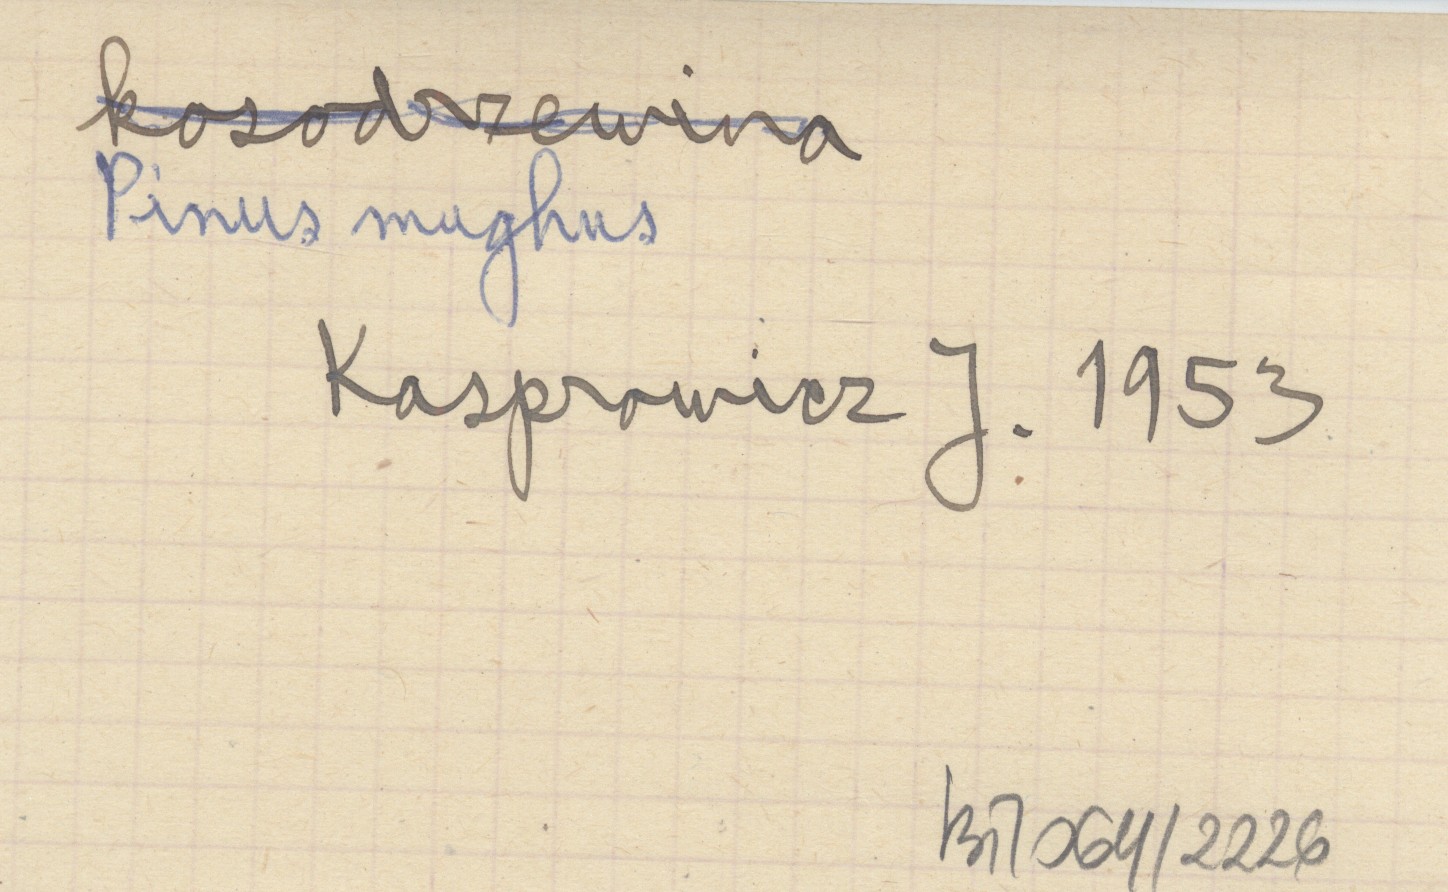 kosodrzewina
Pinus mughus
Kasprowicz J. 1953
064/2226